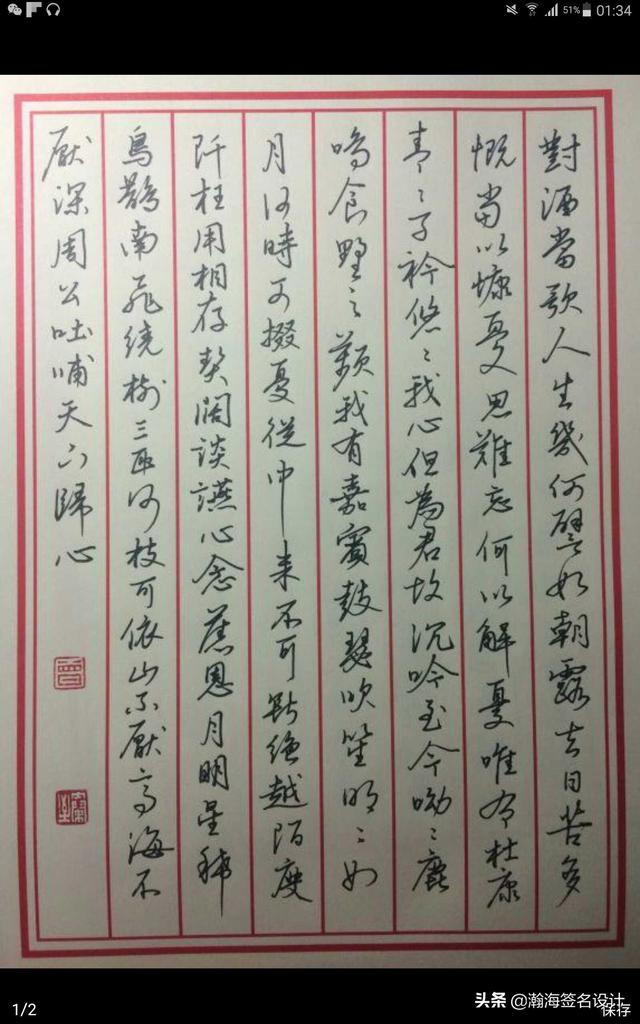 51% 01:34
對酒當歌人生幾何譬如朝露去日苦多
慨當以慷憂思難忘何以解憂唯有杜康
青〻子衿悠〻我心但為君故沉吟至今呦〻鹿
鳴食野之蘋我有嘉賓鼓瑟吹笙明〻如
月何時可掇憂從中来不可斷絕越陌度
阡枉用相存契闊談讌心念舊恩月明星稀
烏鵲南飛繞樹三匝何枝可依山不厭高海不
厭深周公吐哺天下歸心
曾
1/2
头条 @瀚海签名设计
保存